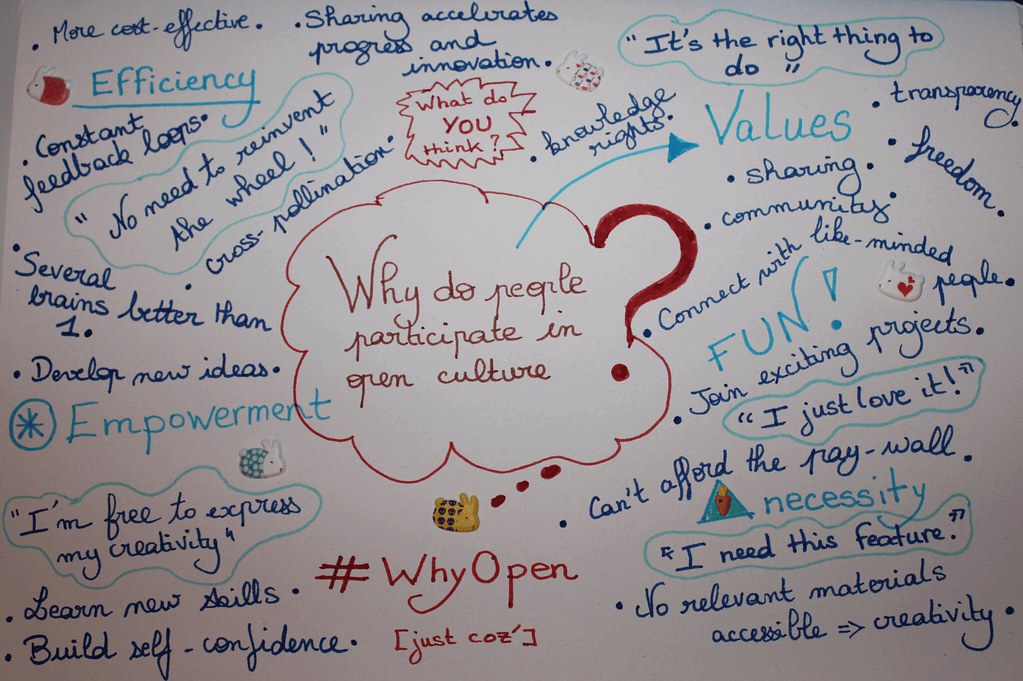 . More cost-effective.
. Sharing accelerates
progress and
innovation.
Efficiency
. Constant
feedback loops.
"No need to reinvent
the wheel!"
. cross-pollination.
. Several
brains better than
1.
. Develop new ideas.
What do
YOU
think?
"It's the right thing to
do"
Values
. transparency.
. knowledge
rights.
. sharing.
. freedom.
. community.
. Connect with like-minded
people.
Why do people
participate in
open culture
?
FUN!
. Join exciting projects.
"I just love it!"
* Empowerment
"I'm free to express
my creativity"
. Learn new skills.
. Build self-confidence.
. Can't afford the pay-wall.
necessity
"I need this feature."
. No relevant materials
accessible => creativity.
#WhyOpen
[just coz']